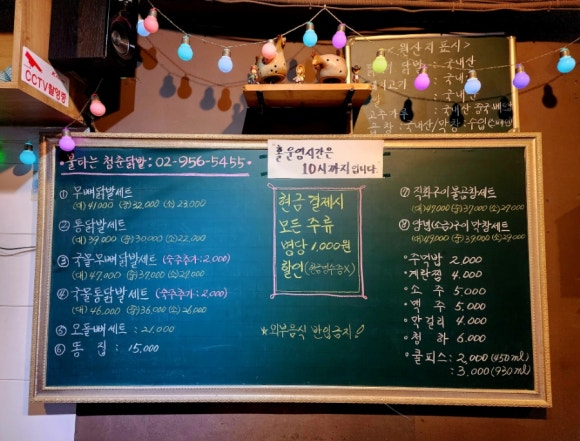 CCTV촬영중
<원산지 표시>
닭발 : 국내산
: 국내산
: 국내산
고추가루 : 국내산 중국
곱창 : 국내산/막창 : 수입
• 불타는 청춘닭발 : 02-956-5455 •
홀 운영시간은
10시까지입니다.
① 무뼈닭발세트
(대) 41,000 (중) 32,000 (소) 23,000
② 통닭발세트
(대) 39,000 (중) 30,000 (소) 22,000
③ 국물무뼈닭발세트 (숙주추가 : 2,000)
(대) 47,000 (중) 37,000 (소) 27,000
④ 국물통닭발세트 (숙주추가 : 2,000)
(대) 46,000 (중) 36,000 (소) 26,000
⑤ 오돌뼈세트 : 21,000
⑥ 똥집 : 15,000
현금결제시
모든 주류
병당 1,000원
할인 (현금영수증X)
* 외부음식 반입금지!
⑦ 직화구이불곱창세트
(대) 47,000 (중) 37,000 (소) 27,000
⑧ 양념(소금)구이막창세트
(대) 49,000 (중) 39,000 (소) 29,000
• 주먹밥 2,000
• 계란찜 4,000
• 소주 5,000
• 맥주 5,000
• 막걸리 4,000
• 청하 6,000
• 쿨피스 : 2,000 (450ml)
: 3,000 (930ml)